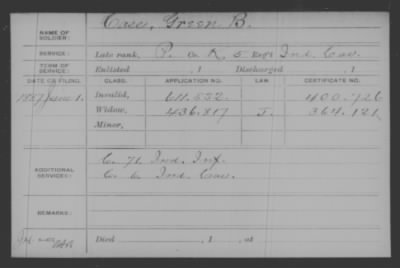 NAME OF SOLDIER: Case, Green B.
SERVICE: Late rank, P. Co. A, 5 Reg't Ind. Cav.
TERM OF SERVICE: Enlisted , 1 Discharged , 1
DATE OF FILING. CLASS. APPLICATION NO. LAW. CERTIFICATE NO.
1887 June 1. Invalid, 611.552. 400.726
Widow, 436.817 J. 364.121
Minor,
ADDITIONAL SERVICES: C. 71 Ind. Inf.
C. 6 Ind. Cav.
REMARKS:
Died , 1 , at